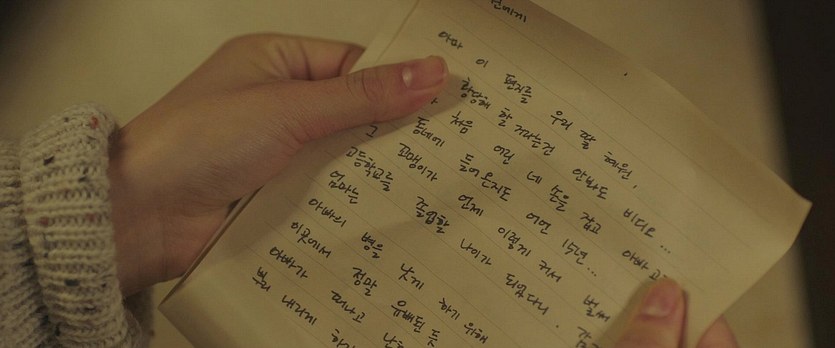 원에게
아마 이 편지를 우리 딸 혜원,
황당해 할 거라는건 안봐도 비디오...
처음 어린 네 손을 잡고 아빠
동네에 들어온지도 어언 15년...
그 꼬맹이가 언제 이렇게 커서 벌써
고등학교를 졸업할 나이가 되었다니.
엄마는
아빠의 병을 낫게 하기 위해
이곳에서 정말 유배된 듯
아빠가 떠나고
뿌리 내리게